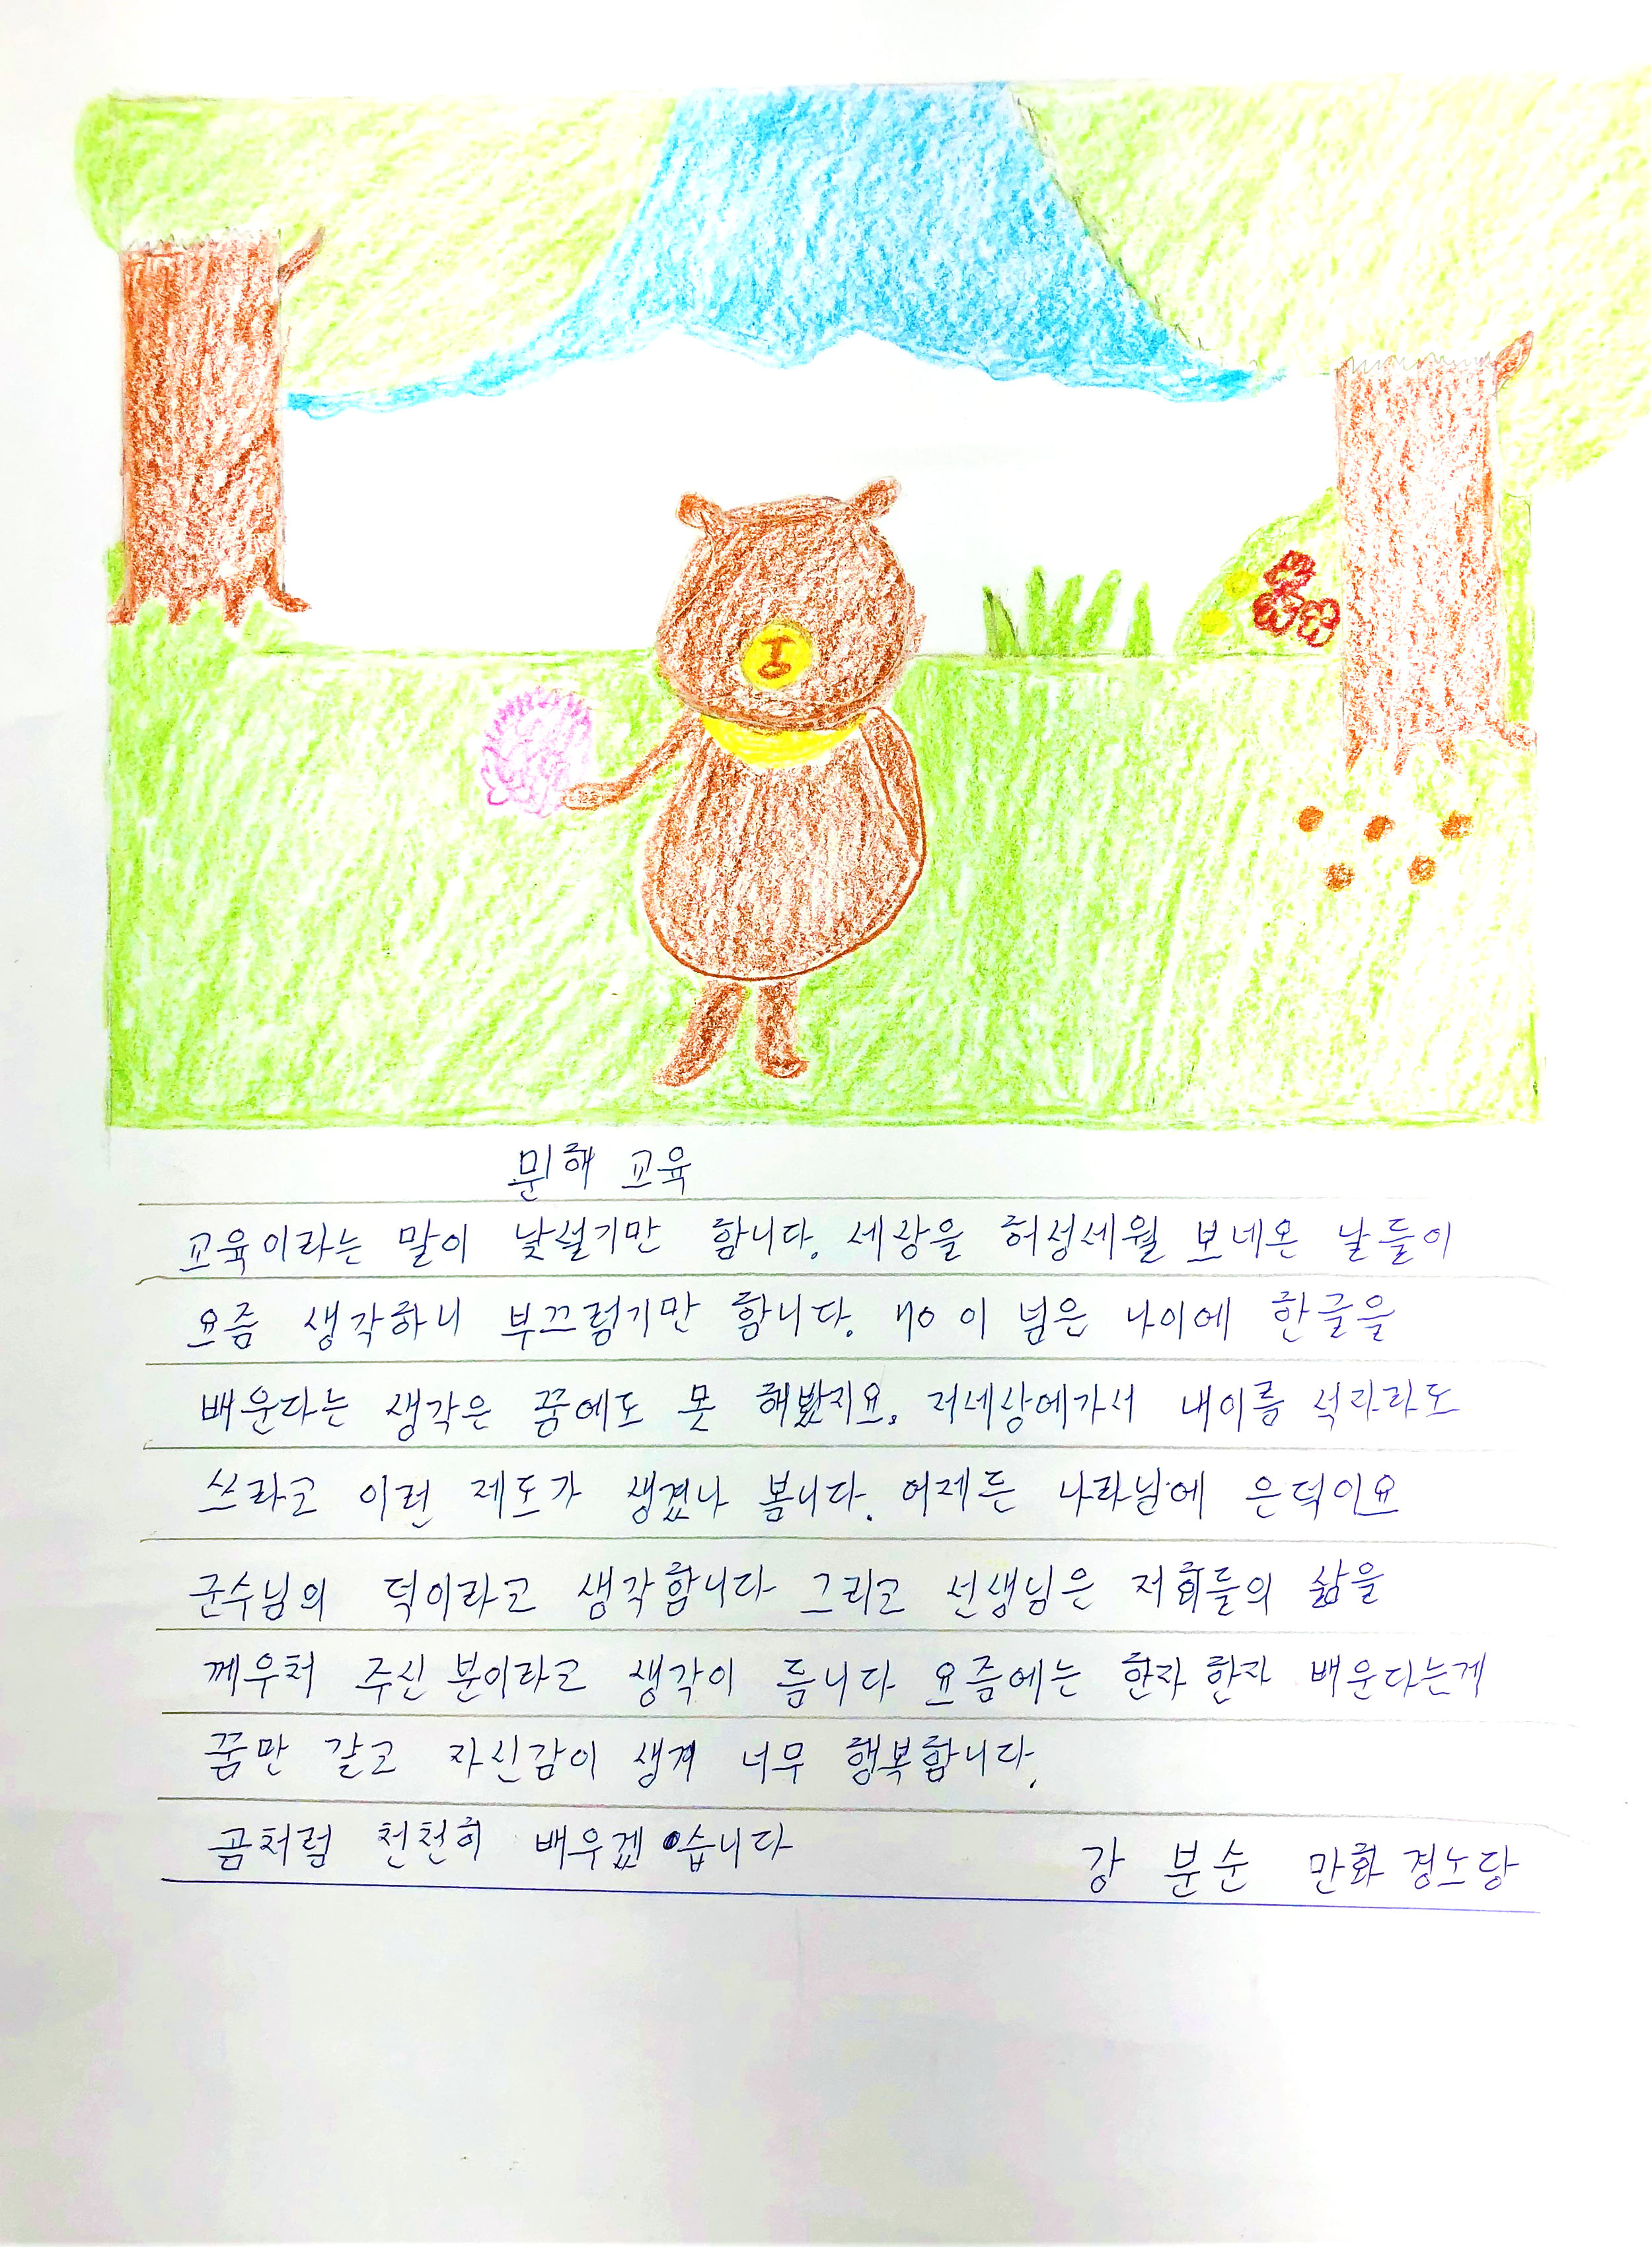 문해 교육
교육이라는 말이 낯설기만 합니다. 세상을 허성세월 보네온 날들이
요즘 생각하니 부끄럽기만 합니다. 70이 넘은 나이에 한글을
배운다는 생각은 꿈에도 못 해봤지요. 저세상에가서 내이름 석자라도
쓰라고 이런 제도가 생겼나 봅니다. 어제든 나라님에 은덕이요
군수님의 덕이라고 생각합니다 그리고 선생님은 저희들의 삶을
께우처 주신 분이라고 생각이 듭니다 요즘에는 한자 한자 배운다는게
꿈만 갈고 자신감이 생겨 너무 행복합니다.
곰처럼 천천히 배우겠습니다 강 분순 만화 경노당